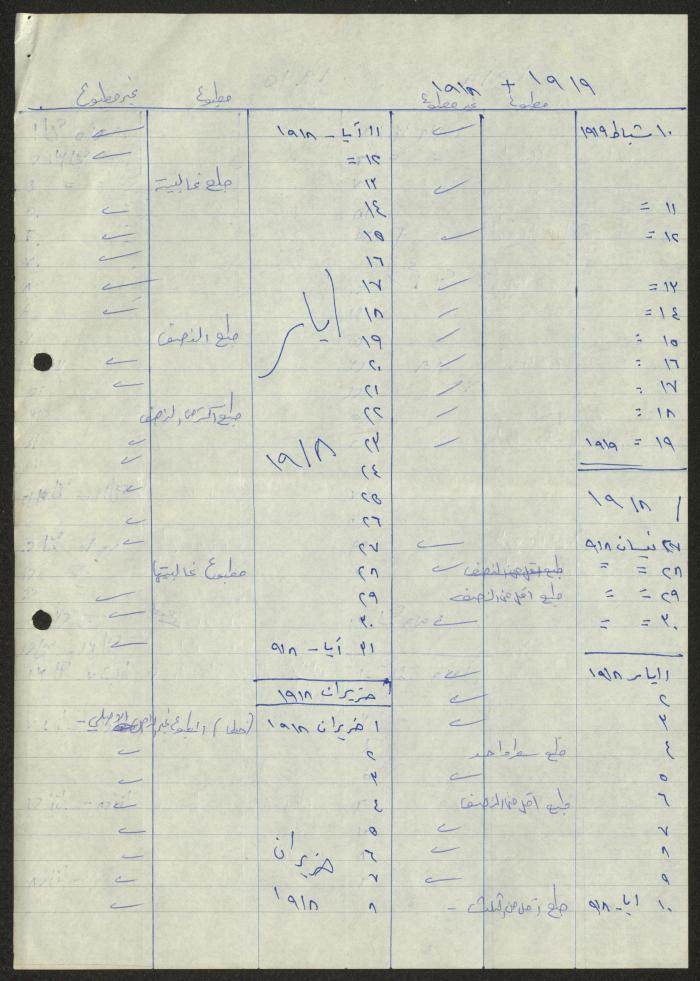 ١٩١٩ + ١٩١٨
مطبوع غير مطبوع مطبوع غير مطبوع
١٠ شباط ١٩١٩ ✓
✓
١١ =
١٢ = ✓
١٣ = ✓
١٤ = ✓
١٥ = ✓
١٦ = ✓
١٧ = ✓
١٨ = ✓
١٩ = ١٩١٩ ✓
١٩١٨
٢٧ نيسان ٩١٨ ✓
٢٨ = = طبع اقل من النصف ✓
٢٩ = = طبع اقل من النصف
٣٠ = = ✓
١ ايار ٩١٨ ✓
٢ ✓
٣ ✓
٤ طبع سطر واحد
٥ ✓
٦ طبع اقل من النصف
٧ ✓
٨ ✓
٩ ✓
١٠ ايار ٩١٨ طبع اقل من الثلث -
١١ أيار - ١٩١٨ ✓
١٢ = ✓
١٣ طبع غالبيته
١٤ ✓
١٥ ✓
١٦ ✓
١٧ ✓
١٨ ✓
ايار
١٩ طبع النصف
٢٠ ✓
٢١ ✓
٢٢ طبع اكثر من النصف
٢٣ ✓
١٩١٨
٢٤ ✓
٢٥ ✓
٢٦ ✓
٢٧ ✓
٢٨ مطبوع غالبيتها
٢٩ ✓
٣٠ ✓
٣١ أيار - ٩١٨ ✓
حزيران ١٩١٨
١ حزيران ١٩١٨ المطبوع غير الاصلي -
٢ ✓
٣ ✓
٤ ✓
٥ ✓
٦ ✓
حزيران
٧ ✓
٨ ✓
١٩١٨